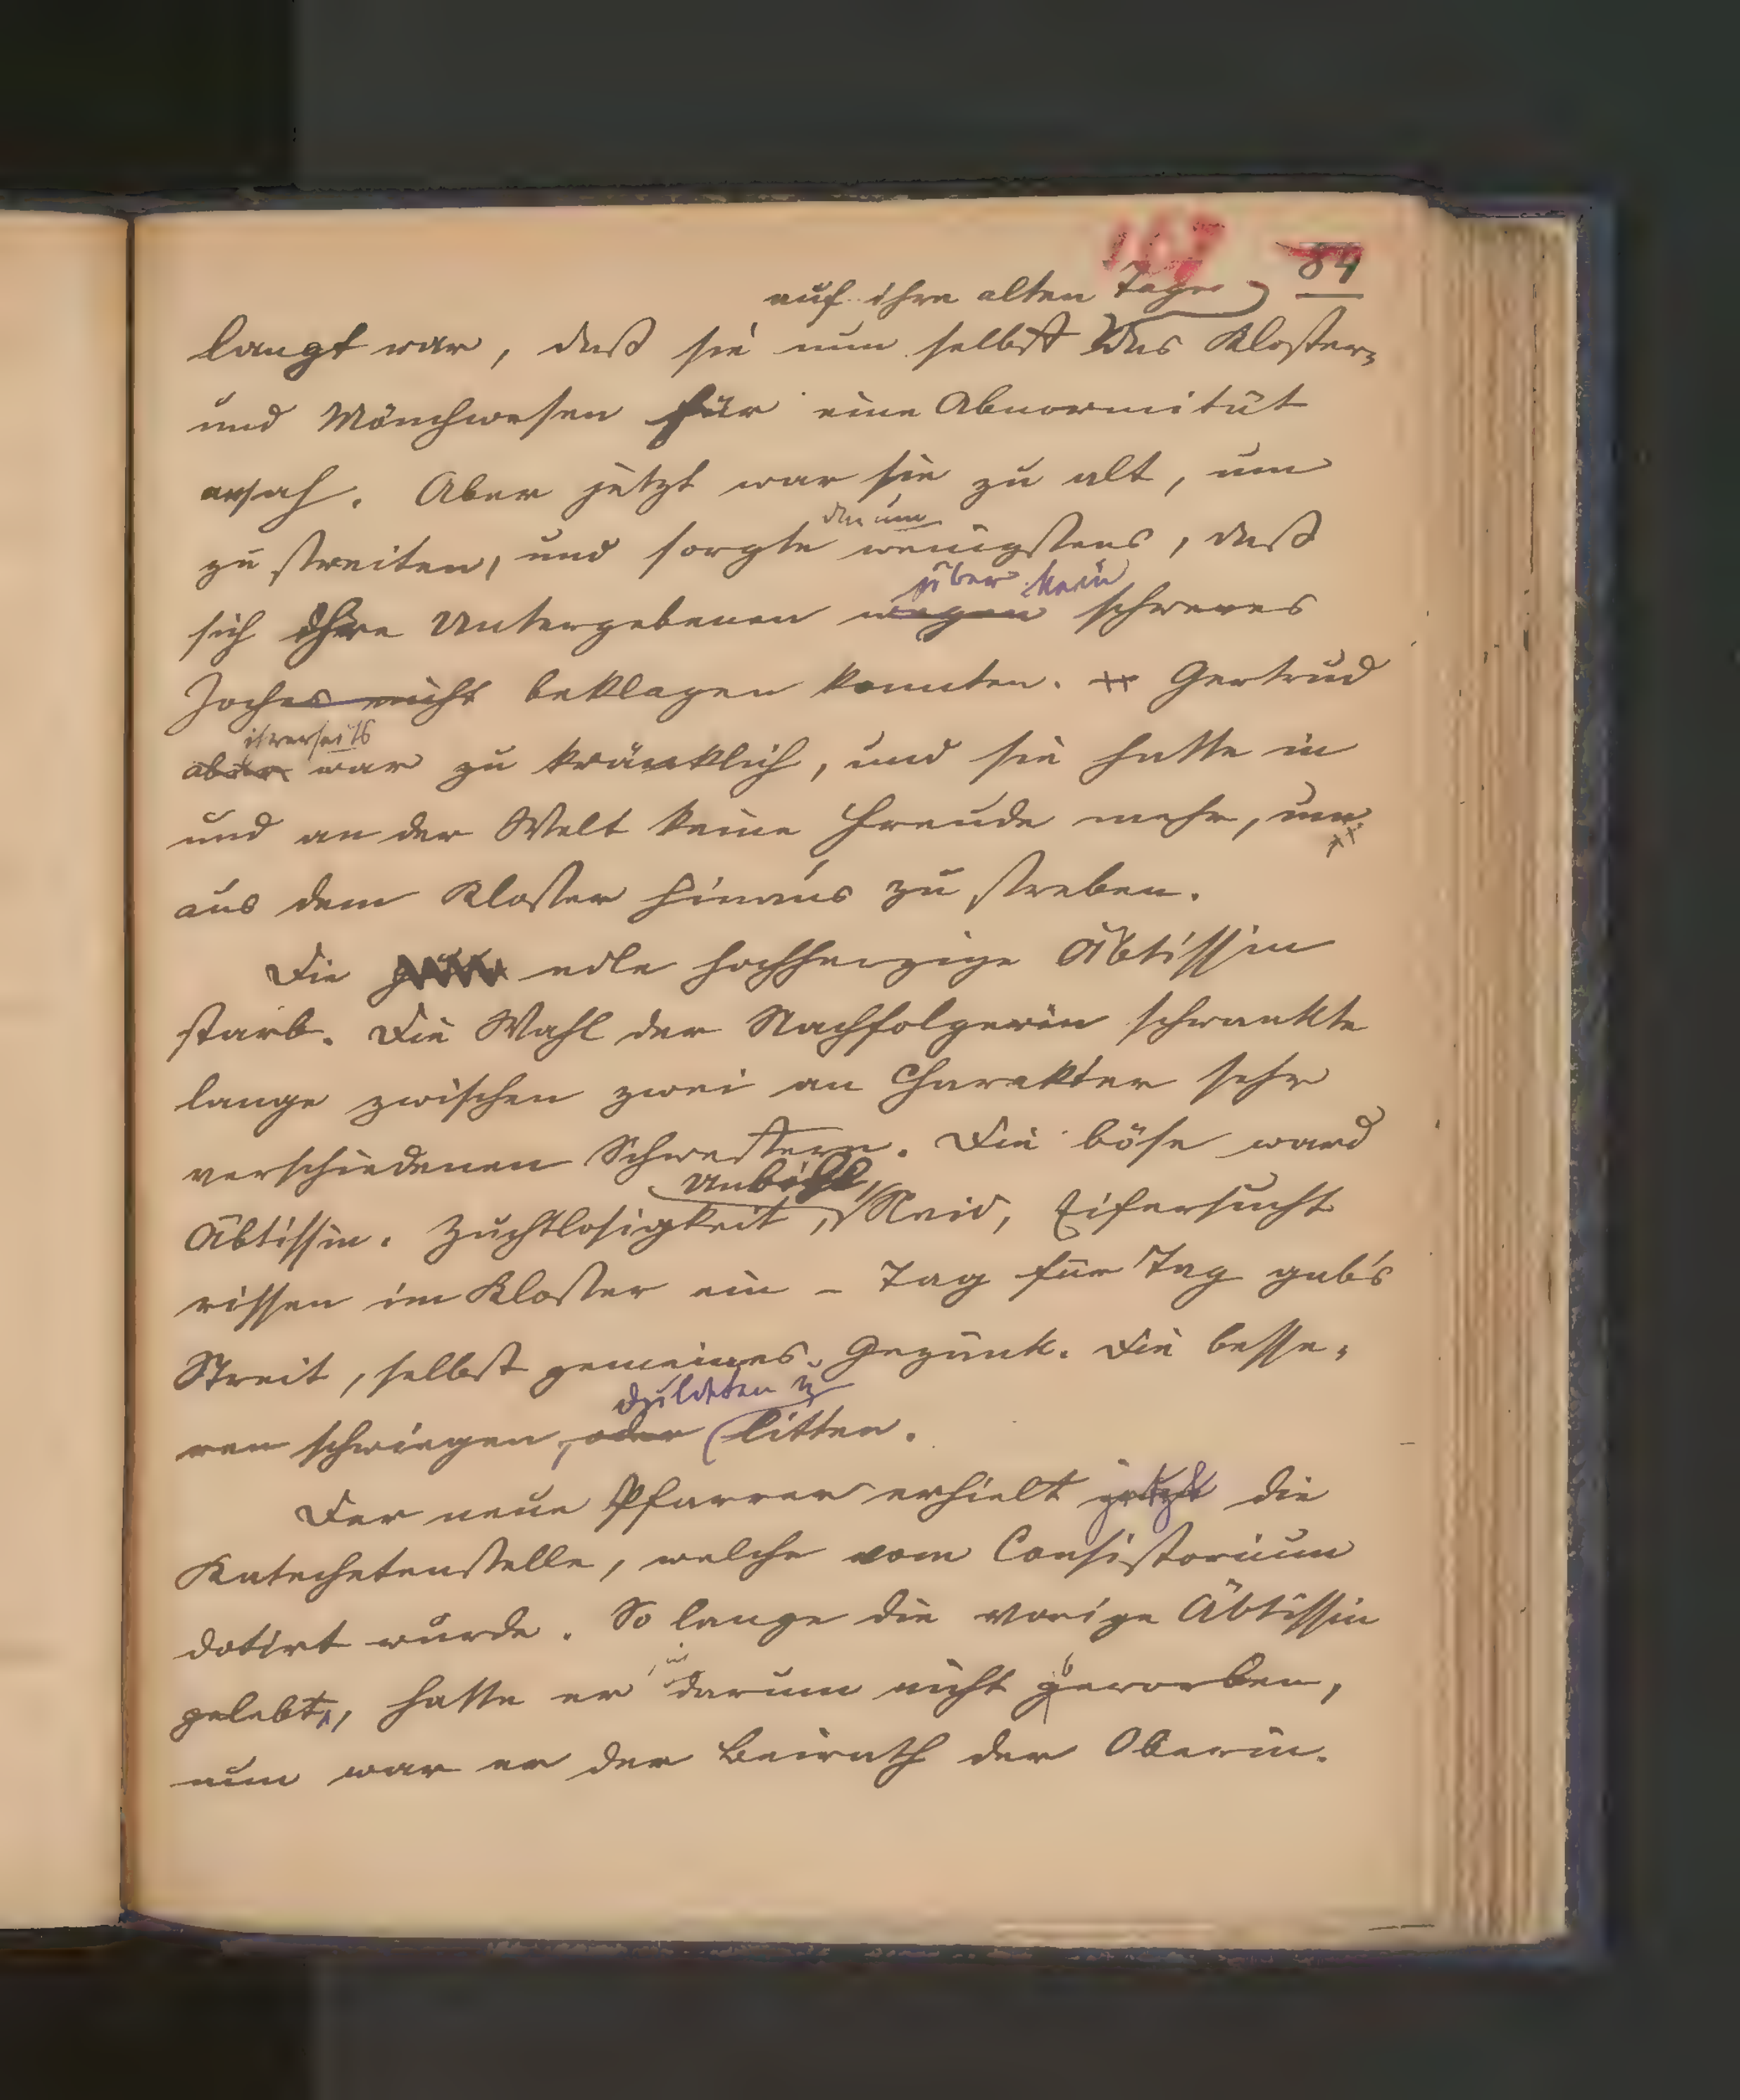 167 84
auf ihre alten Tage
langt war, daß sie nun selbst das Kloster-
und Mönchwesen für eine Abnormität
ansah. Aber jetzt war sie zu alt, um
darum
zu streiten, und sorgte wenigstens, daß
über kein
sich ihre Untergebenen wegen schweres
Joches nicht beklagen konnten. Gertrud
ihrerseits
aber war zu kränklich, und sie hatte in
und an der Welt keine Freude mehr, um
aus dem Kloster hinaus zu streben.
Die edle hochherzige Äbtissin
starb. Die Wahl der Nachfolgerin schwankte
lange zwischen zwei an Charakter sehr
verschiedenen Schwestern. Die böse ward
Unbill,
Äbtissin. Zuchtlosigkeit, Neid, Eifersucht
rissen im Kloster ein – Tag für Tag gab's
Streit, selbst gemeines Gezänk. Die besse-
duldeten u
ren schwiegen, oder litten.
Der neue Pfarrer erhielt jetzt die
Katechetenstelle, welche vom Consistorium
dotirt wurde. So lange die vorige Äbtissin
gelebt, hatte er darum nicht geworben,
nun war er der Beirath der Oberin.